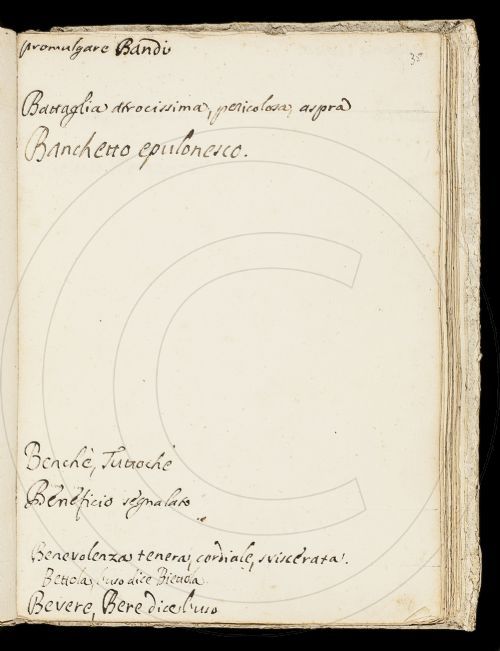 promulgare Bandi
38
Battaglia atrocissima, pericolosa, aspra
Banchetto epulonesco.
Benchè, Tuttochè
Beneficio segnalato
Benevolenza tenera, cordiale, sviscerata.
Bettola, l'uso dice Biettola
Bevere, Bere dice l'uso